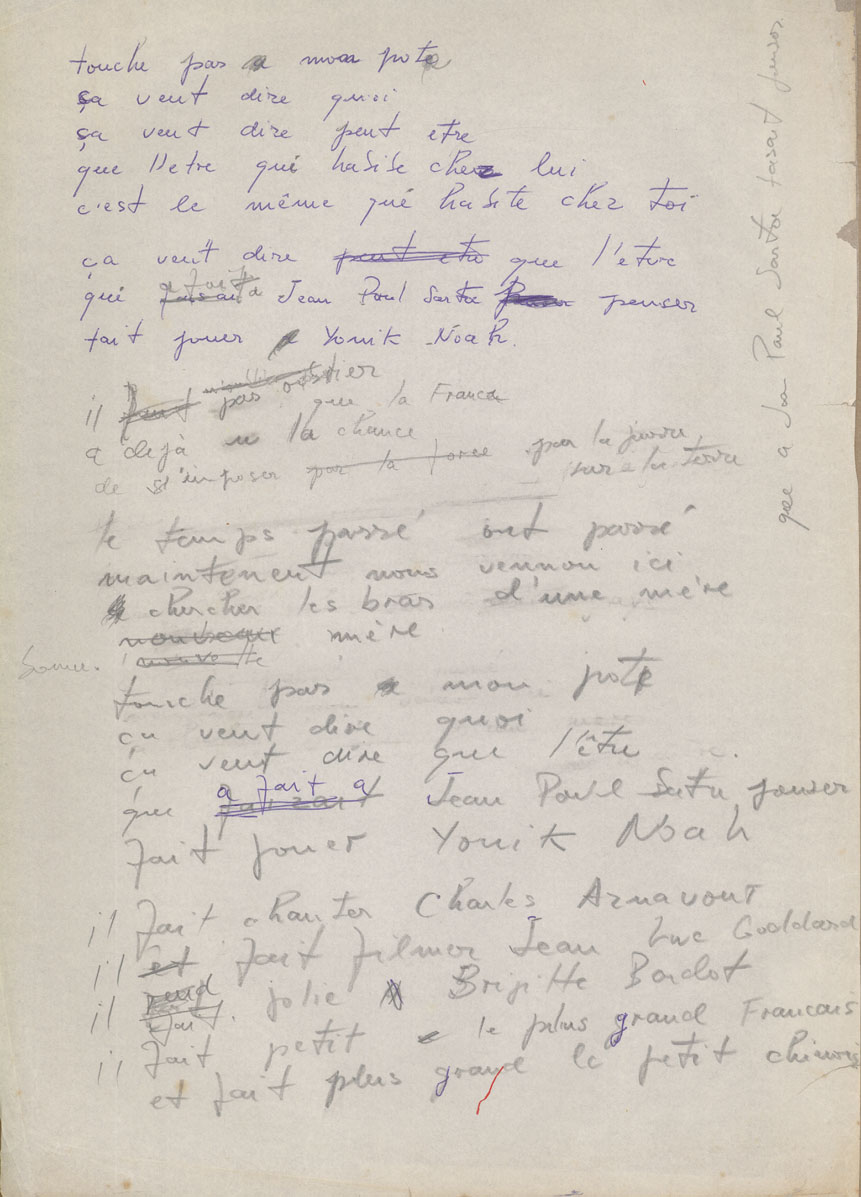 touche pas a mon pote
ça veut dire quoi
ça veut dire peut etre
que l'etre qui habite chez lui
c'est le même qui habite chez toi
ça veut dire peut etre que l'etre
qui a fait a Jean Poul Sartre penser
fait jouer Yonik Noah.
il faut pas oublier
que la France
a dejà u la chance
de s'imposer par la force par la pierre
sur la terre
le temps passé ont passé
maintenent nous vennou ici
chercher les bras d'une mère
nouveaux mère
nouvelle
touche pas a mon pote
ça veut dire quoi
ça veut dire que l'être
que a fait a Jean Poul Satre penser
fait jouer Yonik Noah
il fait chanter Charles Aznavour
il et fait filmer Jean Luc Goddard
il rend jolie Brigitte Bardot
fait
il fait petit le plus grand Francais
et fait plus grand le petit chinois
que a Jean Paul Sartre faisait penser.